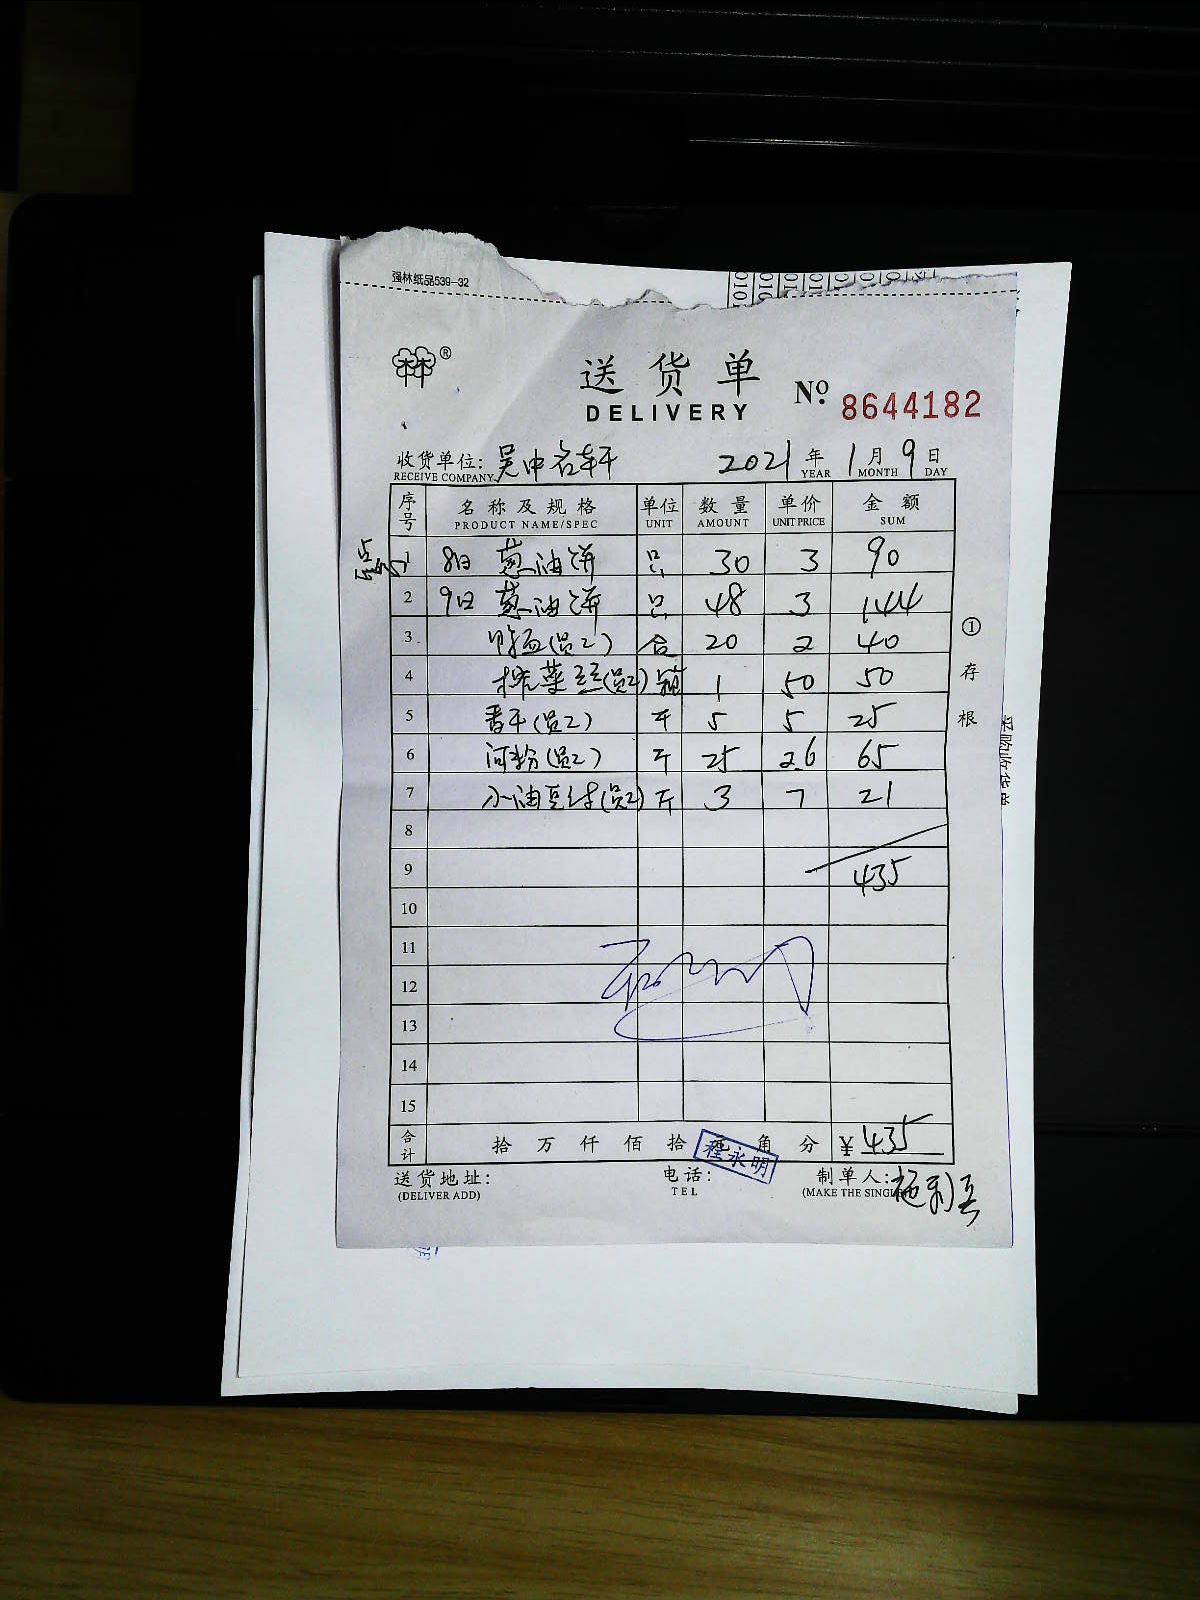 强林纸品539-32
®
送货单
DELIVERY
No. 8644182
收货单位: 吴中名轩 2021 年 1 月 9 日
RECEIVE COMPANY YEAR MONTH DAY
序号 名称及规格 单位 数量 单价 金额
PRODUCT NAME/SPEC UNIT AMOUNT UNIT PRICE SUM
点心
1 8日 葱油饼 只 30 3 90
2 9日 葱油饼 只 48 3 144
3 (员工) 合 20 2 40
4 榨菜丝(员工) 箱 1 50 50
5 香干(员工) 斤 5 5 25
6 河粉(员工) 斤 25 2.6 65
7 小油豆结(员工) 斤 3 7 21
8
9 435
10
11
12
13
14
15
合计 拾 万 仟 佰 拾 元 角 分 ¥ 435
程永明
送货地址: 电话: 制单人:
(DELIVER ADD) TEL (MAKE THE SINGLE
① 存根
采购收货单